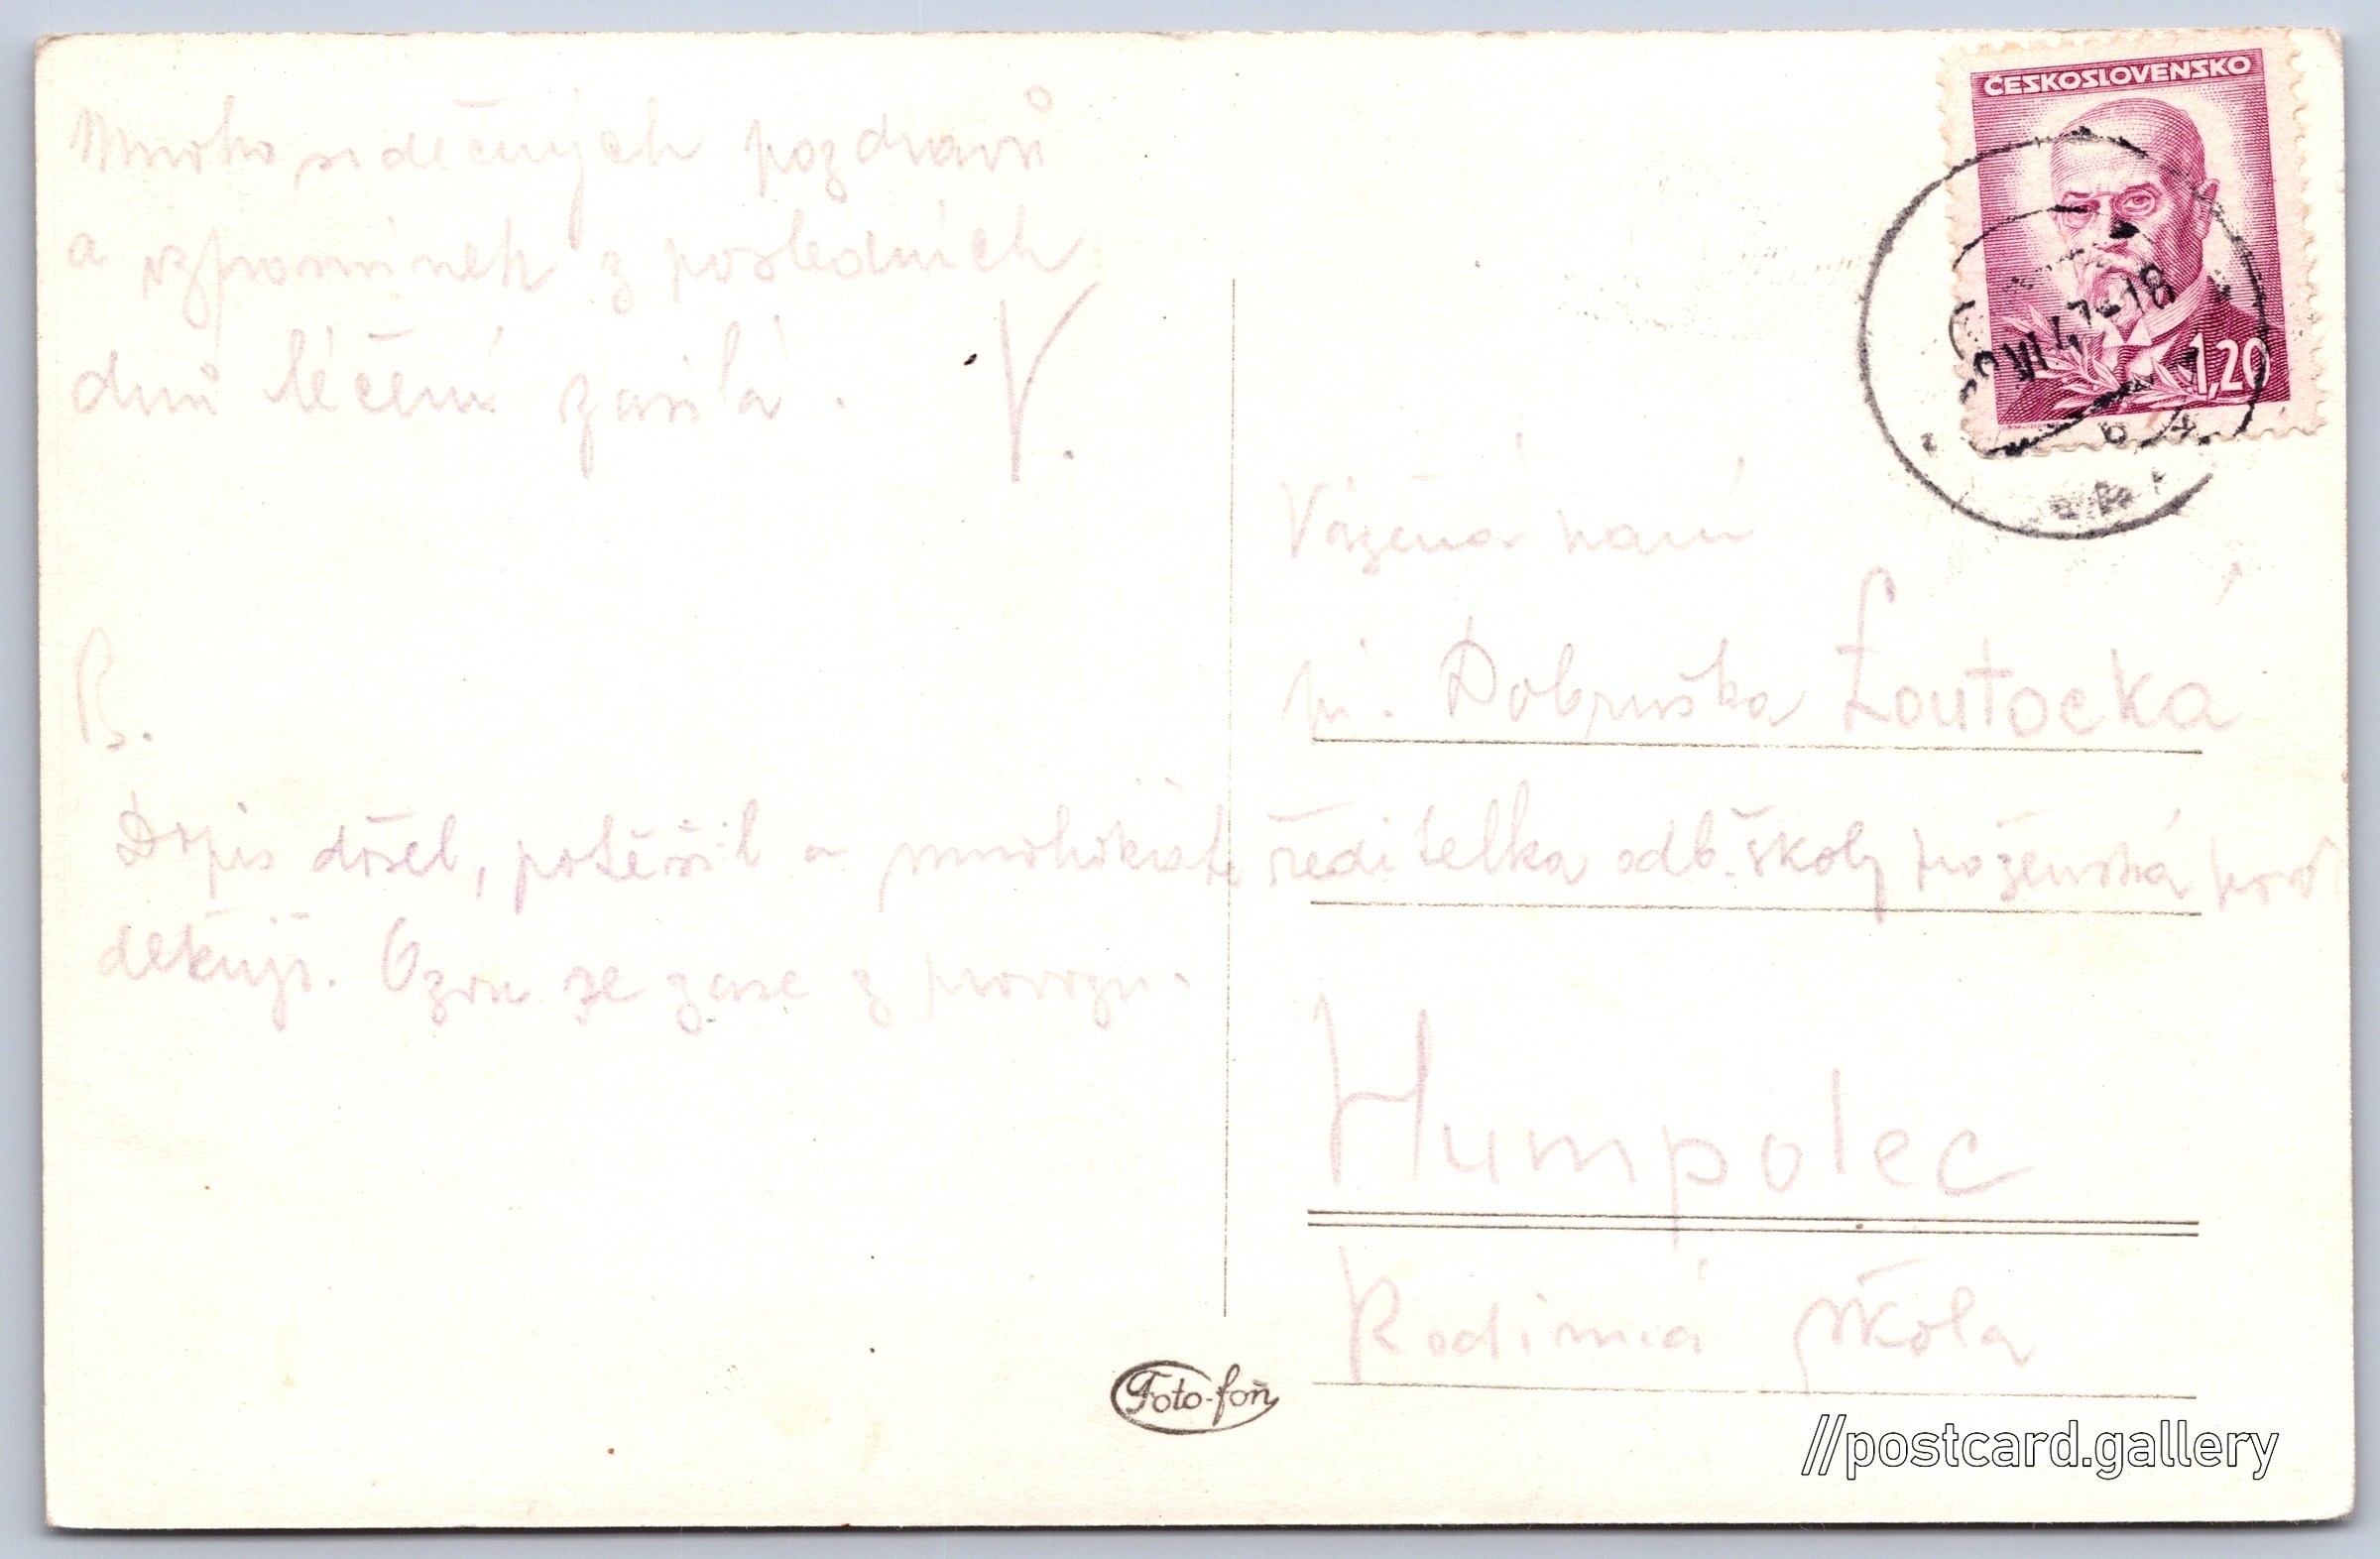 Mnoho srdečných pozdravů
a vzpomínek z posledních
dnů léčení zasílá.
V.
P.
Dopis došel, potěšil a mnohokráte
děkuji. Ozvu se zase z provozu.
ČESKOSLOVENSKO
1,20
VI 47-18
Vážená paní
pí. Dobruška Loutocká
ředitelka odb. školy
Humpolec
Rodinná škola
Foto-fon
//postcard.gallery